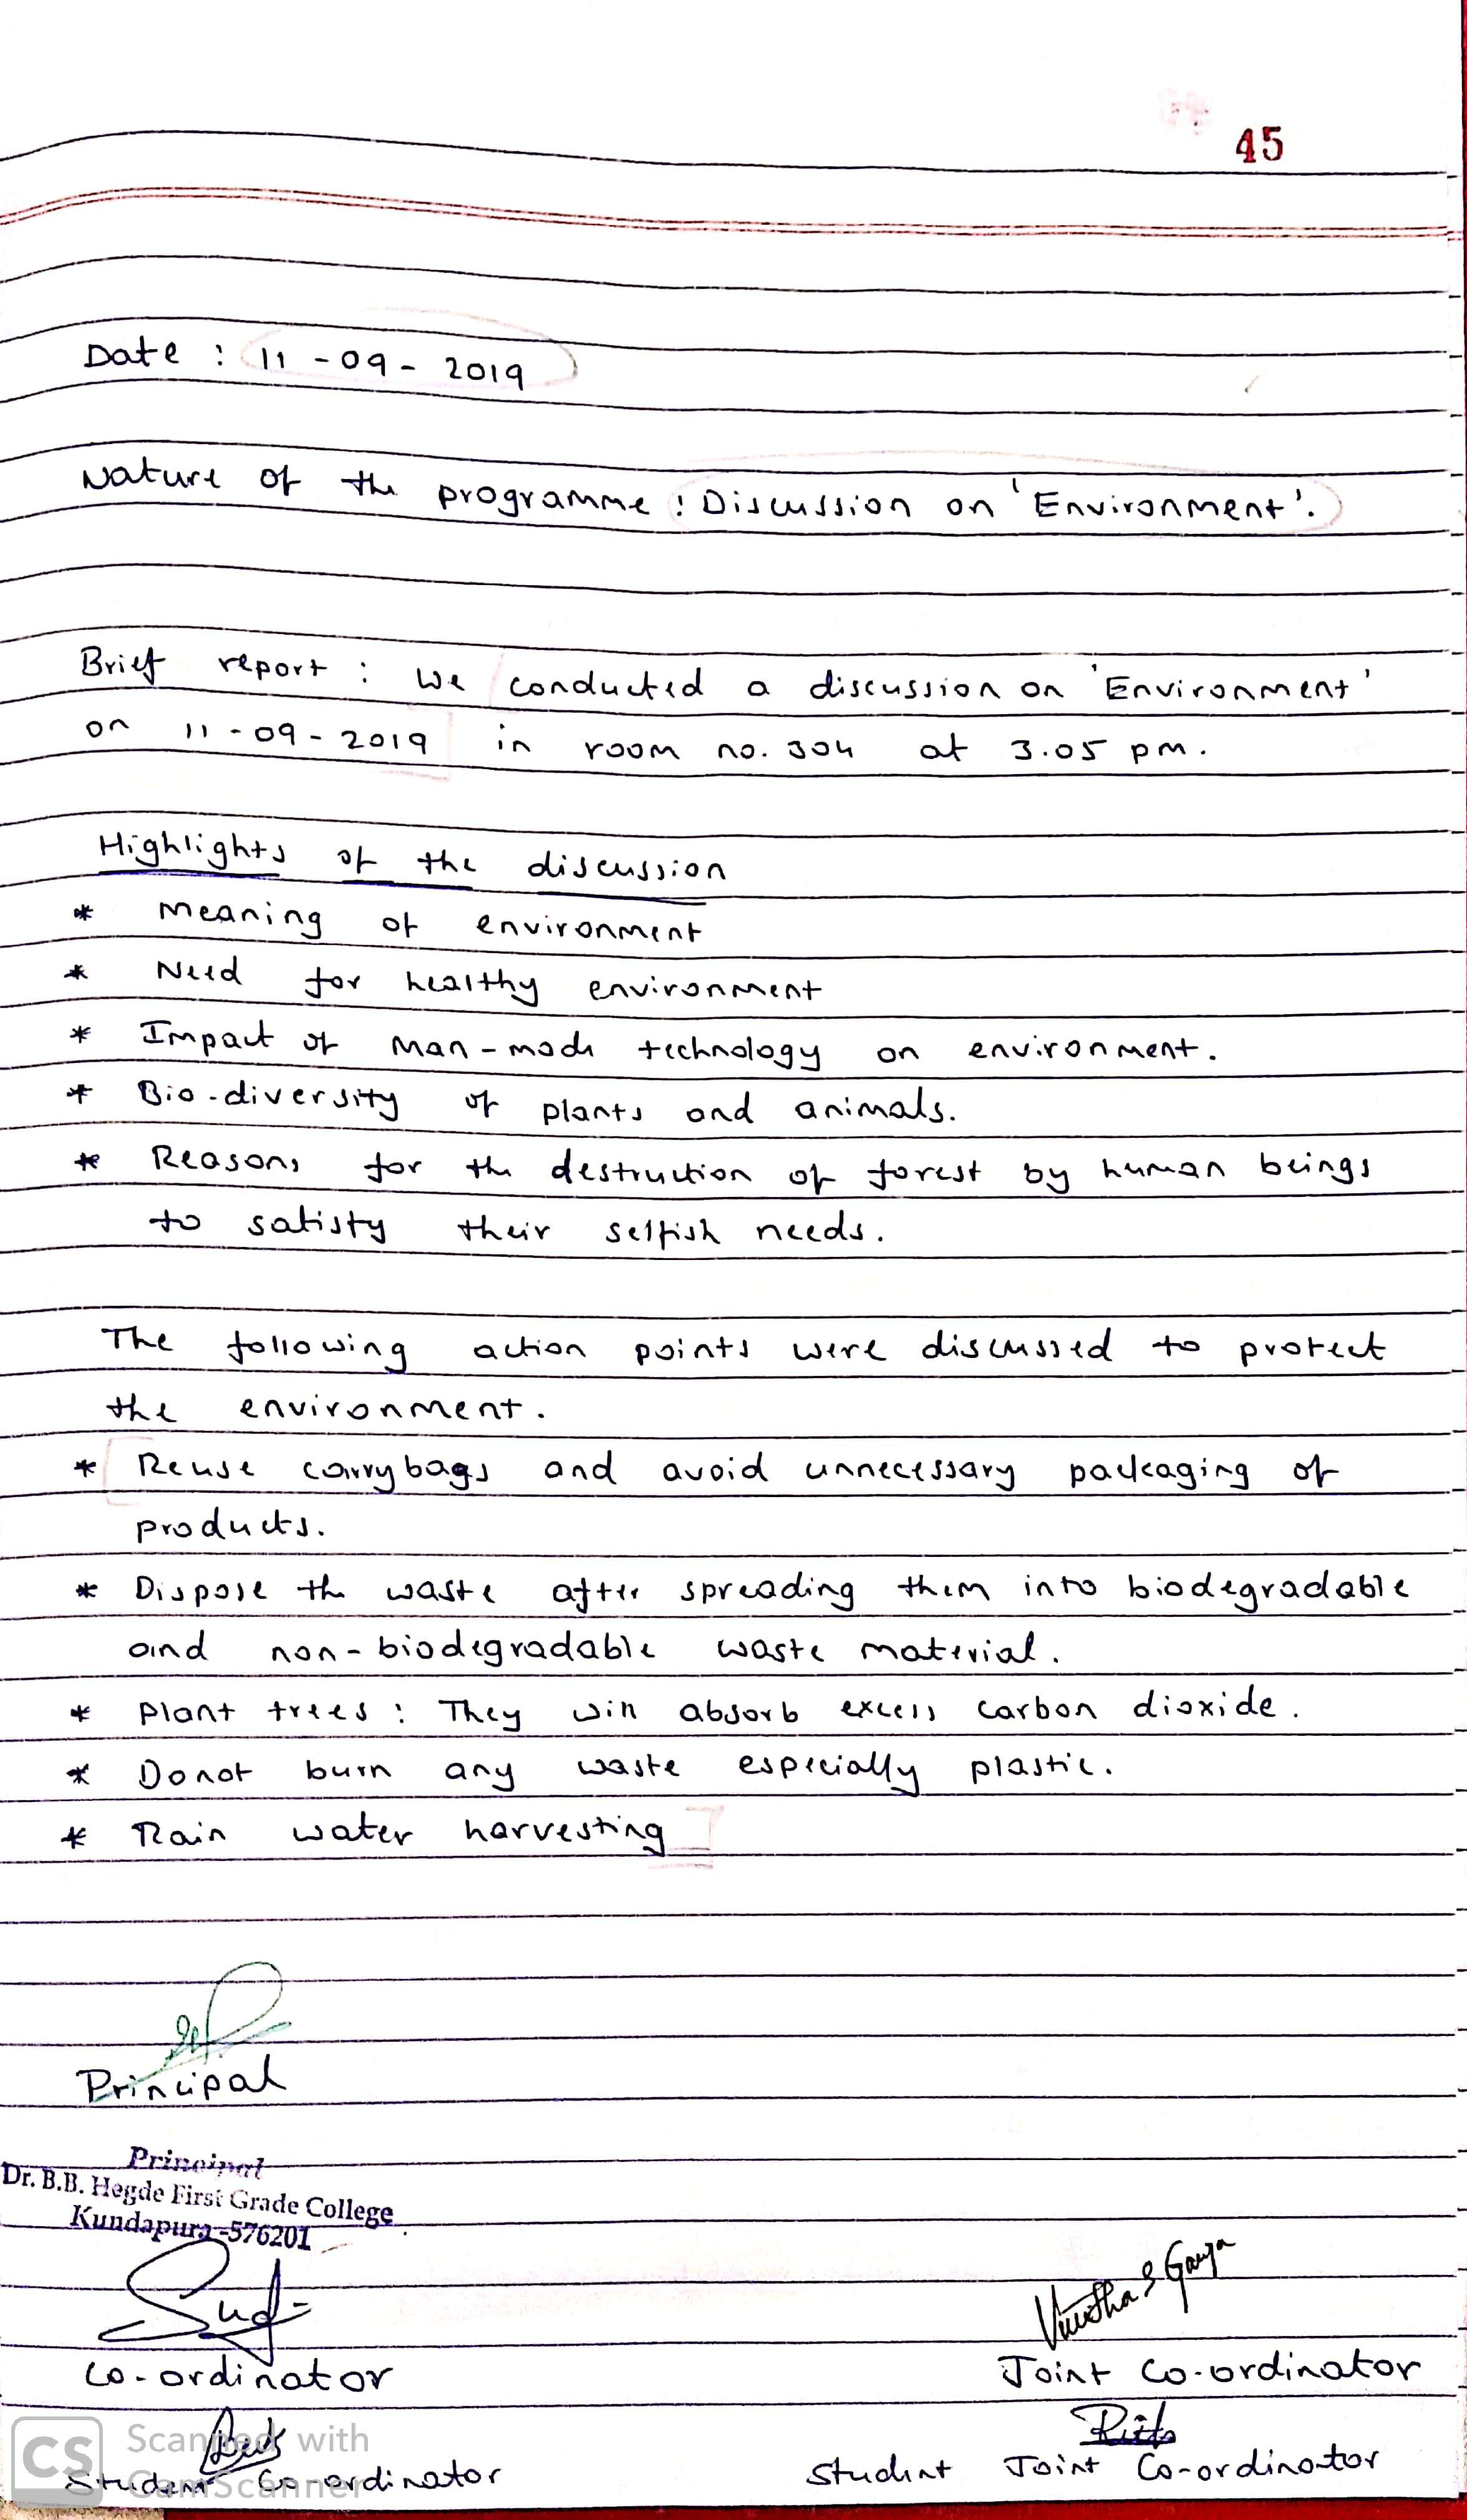 45
Date : 11 - 09 - 2019
Nature of the programme : Discussion on 'Environment'.
Brief report : We conducted a discussion on 'Environment'
on 11 - 09 - 2019 in room no. 304 at 3.05 pm.
Highlights of the discussion
* Meaning of environment
* Need for healthy environment
* Impact of man-made technology on environment.
* Bio-diversity of plants and animals.
* Reasons for the destruction of forest by human beings
to satisfy their selfish needs.
The following action points were discussed to protect
the environment.
* Reuse carrybags and avoid unnecessary packaging of
products.
* Dispose the waste after spreading them into biodegradable
and non-biodegradable waste material.
* Plant trees : They will absorb excess carbon dioxide.
* Donot burn any waste especially plastic.
* Rain water harvesting
Principal
Principal
Dr. B.B. Hegde First Grade College
Kundapura-576201
Co-ordinator
Joint Co-ordinator
Student Co-ordinator
Student Joint Co-ordinator
CS Scanned with
CamScanner